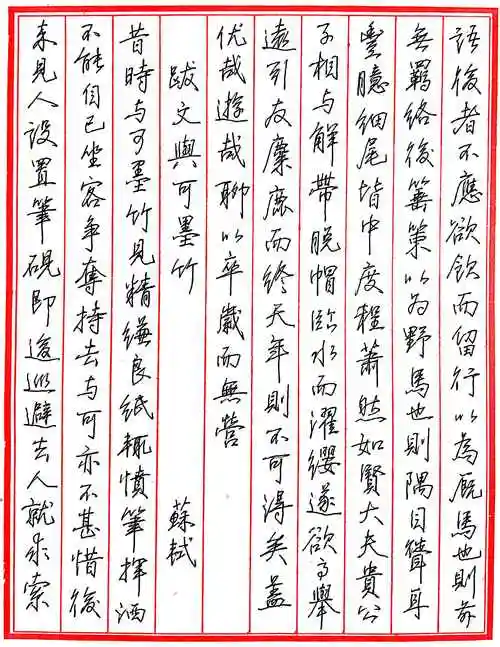 語後者不應欲飲而留行以為厩馬也則前
無羈絡後箠策以為野馬也則隅目聳耳
豐臆細尾皆中度程蕭然如賢大夫貴公
子相与解帶脱帽臨水而濯纓遂欲高舉
遠引友麋鹿而終天年則不可得矣蓋
优哉遊哉聊以卒歲而無營
跋文與可墨竹 蘇軾
昔時与可墨竹見精縑良紙輒憤筆揮洒
不能自已坐客争奪持去与可亦不甚惜後
来見人設置筆硯即逡巡避去人就求索